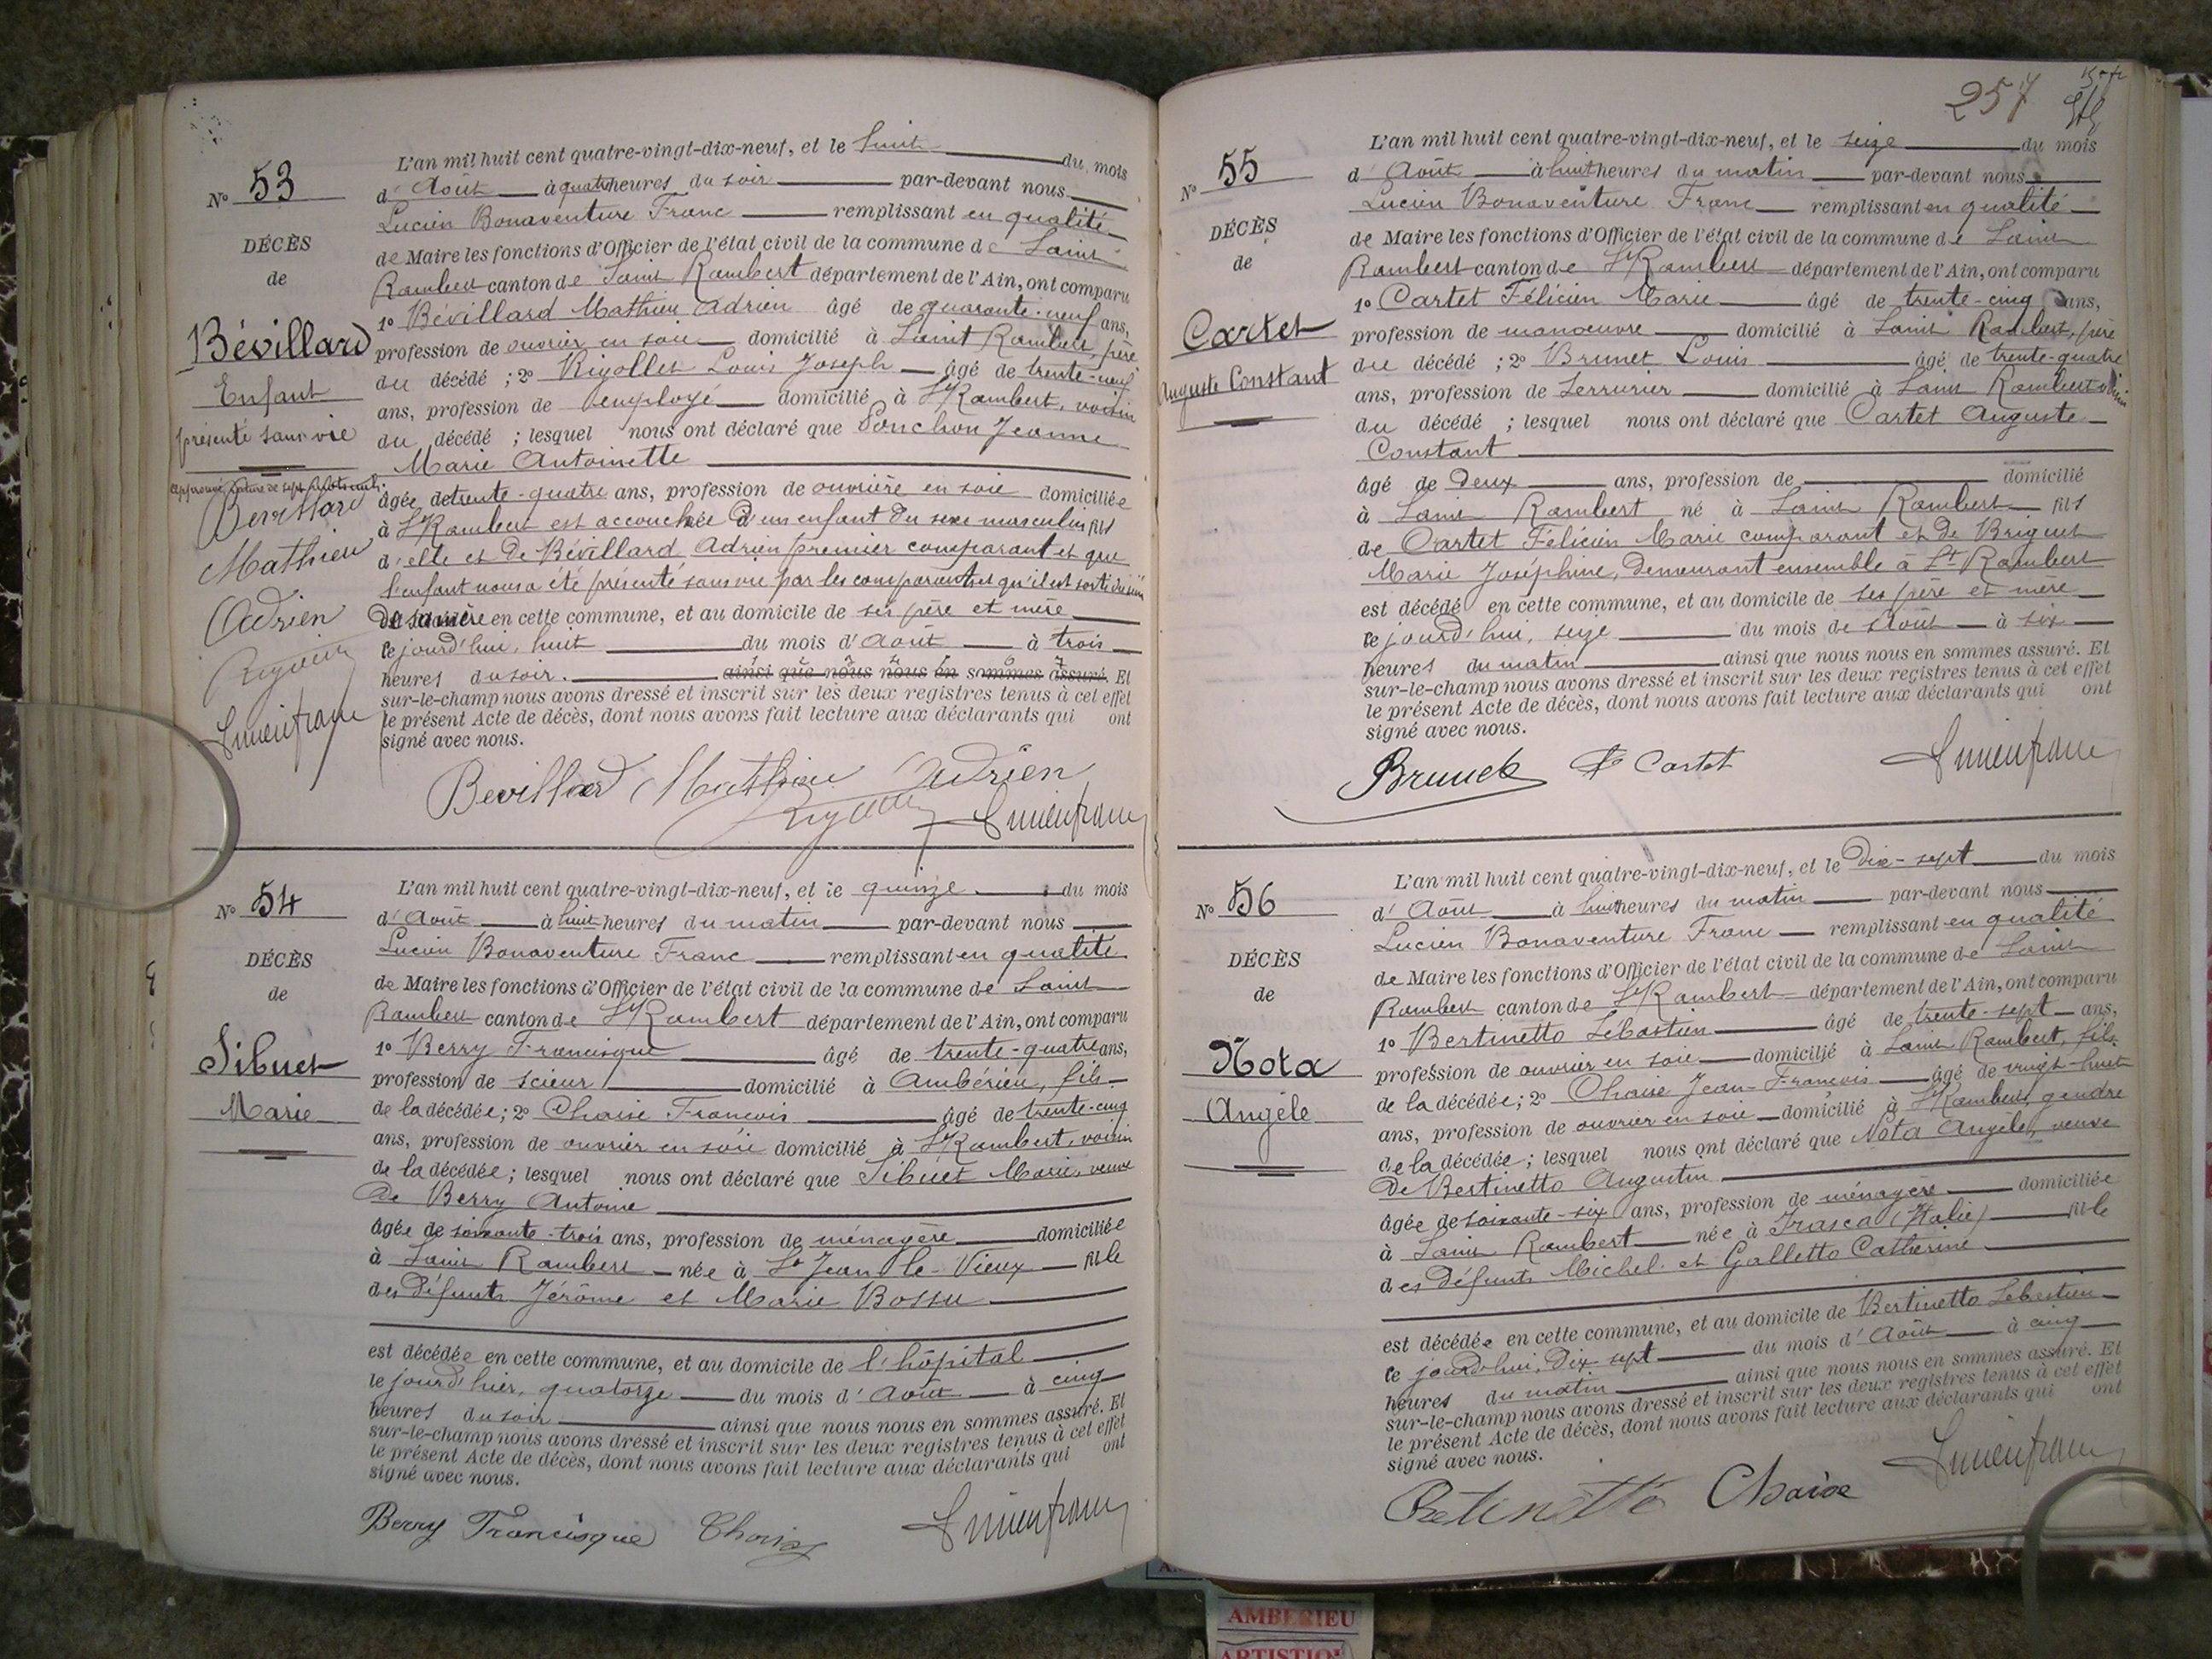 N° 53
DÉCÈS
de
Bévillard
Enfant
présenté sans vie
Bevillard
Mathieu
Adrien
L'an mil huit cent quatre-vingt-dix-neuf, et le huit du mois
d'Août à quatre heures du soir par-devant nous
Lucien Bonaventure Franc remplissant en qualité
de Maire les fonctions d'Officier de l'état civil de la commune de Saint
Rambert canton de Saint Rambert département de l'Ain, ont comparu
1° Bévillard Mathieu Adrien âgé de quarante-neuf ans,
profession de ouvrier en soie domicilié à Saint Rambert, père
du décédé ; 2° Rigollet Louis Joseph âgé de trente-neuf
ans, profession de employé domicilié à St Rambert, voisin
du décédé ; lesquel nous ont déclaré que Ponchon Jeanne
Marie Antoinette
âgée de trente-quatre ans, profession de ouvrière en soie domiciliée
à St Rambert est accouchée d'un enfant du sexe masculin fils
d'elle et de Bévillard Adrien premier comparant et que
l'enfant nous a été présenté sans vie par les comparants et qu'il est sorti du sein
de sa mère en cette commune, et au domicile de ses père et mère
le jourd'hui, huit du mois d'Août à trois
heures du soir. ainsi que nous nous en sommes assuré. Et
sur-le-champ nous avons dressé et inscrit sur les deux registres tenus à cet effet
le présent Acte de décès, dont nous avons fait lecture aux déclarants qui ont
signé avec nous.
Bevillard Mathieu Adrien
Lucien franc
N° 54
DÉCÈS
de
Sibuet
Marie
L'an mil huit cent quatre-vingt-dix-neuf, et le quinze du mois
d'Août à huit heures du matin par-devant nous
Lucien Bonaventure Franc remplissant en qualité
de Maire les fonctions d'Officier de l'état civil de la commune de Saint
Rambert canton de St Rambert département de l'Ain, ont comparu
1° Berry Francisque âgé de trente-quatre ans,
profession de scieur domicilié à Ambérieu, fils
de la décédée ; 2° Chaise François âgé de trente-cinq
ans, profession de ouvrier en soie domicilié à St Rambert, voisin
de la décédée ; lesquel nous ont déclaré que Sibuet Marie, veuve
de Berry Antoine
âgée de soixante-trois ans, profession de ménagère domiciliée
à Saint Rambert née à St Jean le Vieux fille
des défunts Jérôme et Marie Bossu
est décédée en cette commune, et au domicile de l'hôpital
le jourd'hier, quatorze du mois d'Août à cinq
heures du soir ainsi que nous nous en sommes assuré. Et
sur-le-champ nous avons dressé et inscrit sur les deux registres tenus à cet effet
le présent Acte de décès, dont nous avons fait lecture aux déclarants qui ont
signé avec nous.
Berry Francisque Chaise Lucien franc
257
N° 55
DÉCÈS
de
Cartet
Auguste Constant
L'an mil huit cent quatre-vingt-dix-neuf, et le seize du mois
d'Août à huit heures du matin par-devant nous
Lucien Bonaventure Franc remplissant en qualité
de Maire les fonctions d'Officier de l'état civil de la commune de Saint
Rambert canton de St Rambert département de l'Ain, ont comparu
1° Cartet Félicien Marie âgé de trente-cinq ans,
profession de manoeuvre domicilié à Saint Rambert, père
du décédé ; 2° Brunet Louis âgé de trente-quatre
ans, profession de Serrurier domicilié à Saint Rambert voisin
du décédé ; lesquel nous ont déclaré que Cartet Auguste
Constant
âgé de Deux ans, profession de domicilié
à Saint Rambert né à Saint Rambert fils
de Cartet Félicien Marie comparant et de Briguet
Marie Joséphine, demeurant ensemble à St Rambert
est décédé en cette commune, et au domicile de ses père et mère
le jourd'hui, seize du mois de Août à six
heures du matin ainsi que nous nous en sommes assuré. Et
sur-le-champ nous avons dressé et inscrit sur les deux registres tenus à cet effet
le présent Acte de décès, dont nous avons fait lecture aux déclarants qui ont
signé avec nous.
Brunet Cartet Lucien franc
N° 56
DÉCÈS
de
Nota
Angèle
L'an mil huit cent quatre-vingt-dix-neuf, et le Dix-sept du mois
d'Août à huit heures du matin par-devant nous
Lucien Bonaventure Franc remplissant en qualité
de Maire les fonctions d'Officier de l'état civil de la commune de Saint
Rambert canton de St Rambert département de l'Ain, ont comparu
1° Bertinetto Sébastien âgé de trente-sept ans,
profession de ouvrier en soie domicilié à Saint Rambert, fils
de la décédée ; 2° Chaise Jean-François âgé de vingt-huit
ans, profession de ouvrier en soie domicilié à St Rambert, gendre
de la décédée ; lesquel nous ont déclaré que Nota Angèle, veuve
de Bertinetto Augustin
âgée de soixante-six ans, profession de ménagère domiciliée
à Saint Rambert née à Frasca (Italie) fille
des défunts Michel et Galletto Catherine
est décédée en cette commune, et au domicile de Bertinetto Sébastien
le jourd'hui, Dix sept du mois d'Août à cinq
heures du matin ainsi que nous nous en sommes assuré. Et
sur-le-champ nous avons dressé et inscrit sur les deux registres tenus à cet effet
le présent Acte de décès, dont nous avons fait lecture aux déclarants qui ont
signé avec nous.
Chaise Lucien franc
AMBERIEU